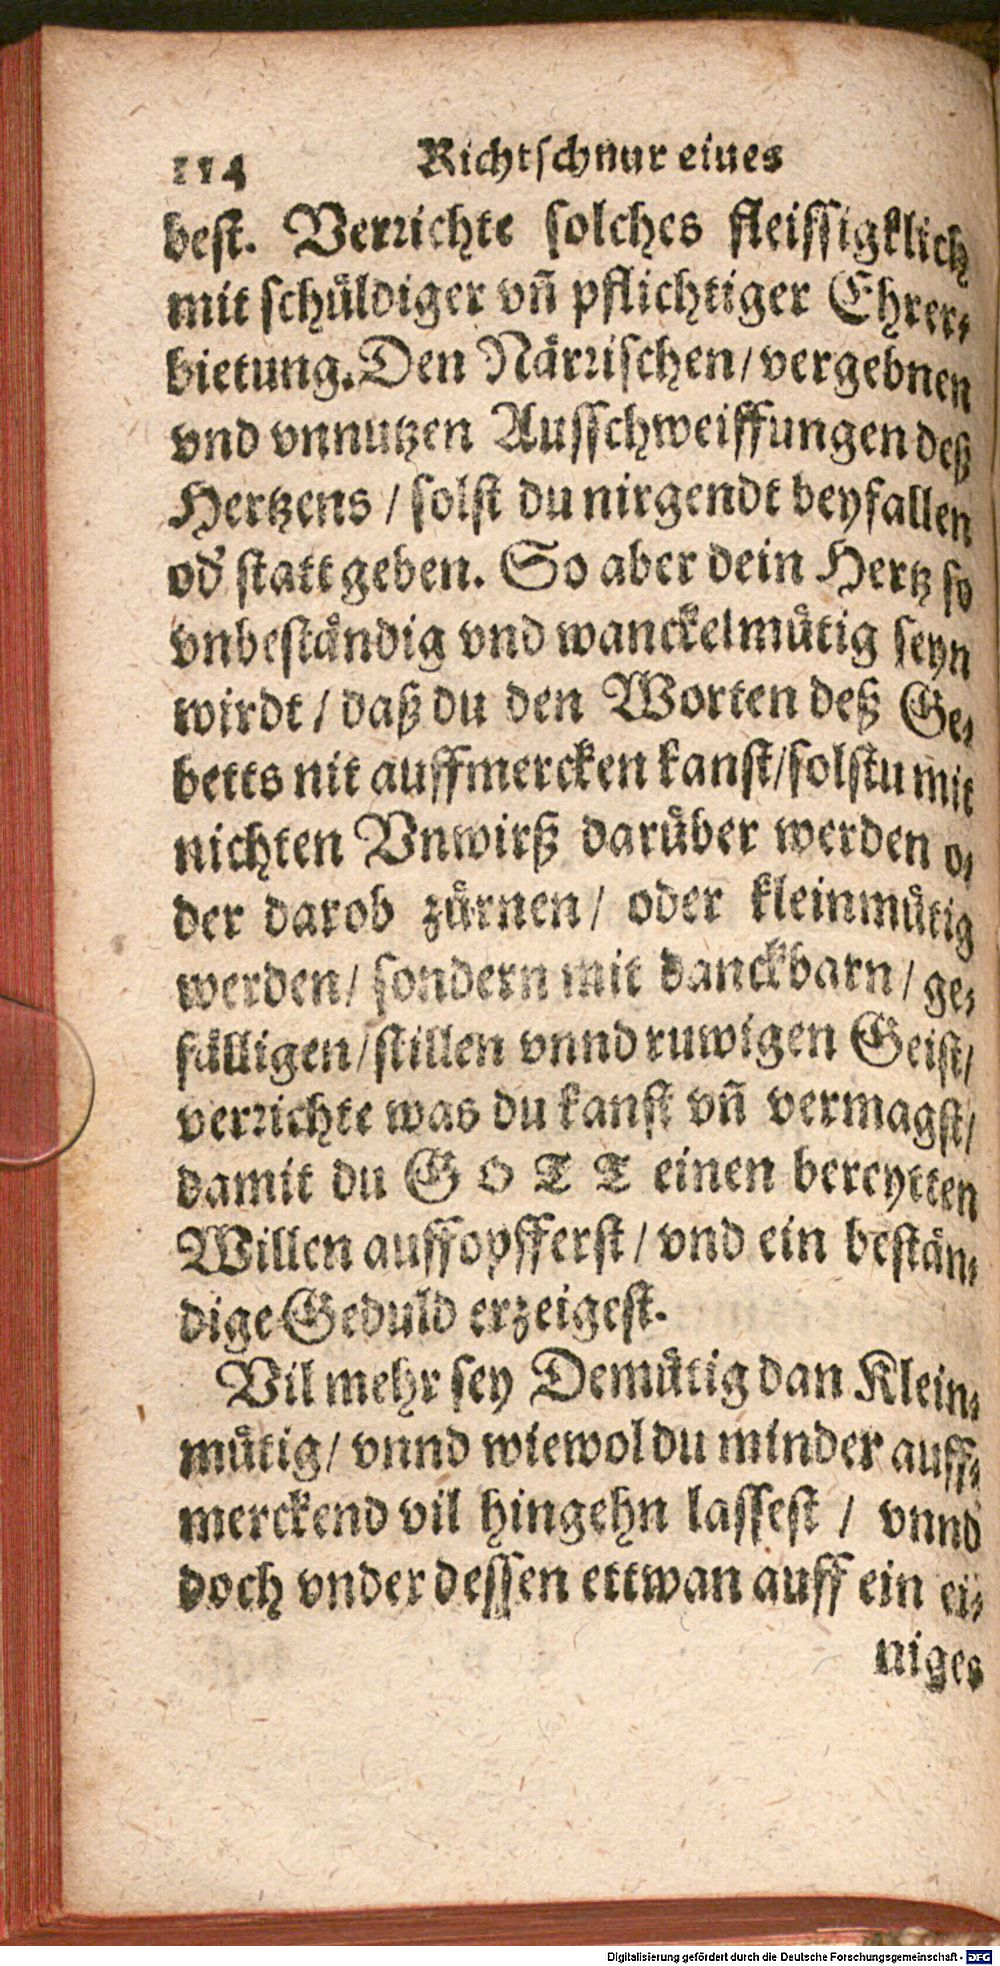 114 Richtschnur eines
best. Verrichte solches fleissigklich
mit schuͤldiger vñ pflichtiger Ehrer⸗
bietung. Den Naͤrrischen / vergebnen
vnd vnnutzen Ausschweiffungen deß
Hertzens / solst du nirgendt beyfallen
od' statt geben. So aber dein Hertz so
vnbestaͤndig vnd wanckelmuͤtig seyn
wirdt / daß du den Worten deß Ge⸗
betts nit auffmercken kanst / solstu mit
nichten Vnwirß daruͤber werden o⸗
der darob zuͤrnen / oder kleinmuͤtig
werden / sondern mit danckbarn / ge⸗
faͤlligen / stillen vnnd ruwigen Geist /
verrichte was du kanst vñ vermagst /
damit du GOTT einen bereytten
Willen auffopfferst / vnd ein bestaͤn⸗
dige Geduld erzeigest.
Vil mehr sey Demuͤtig dan Klein⸗
muͤtig / vnnd wiewol du minder auff⸗
merckend vil hingehn lassest / vnnd
doch vnder dessen ettwan auff ein ei⸗
niges
Digitalisierung gefördert durch die Deutsche Forschungsgemeinschaft - DFG